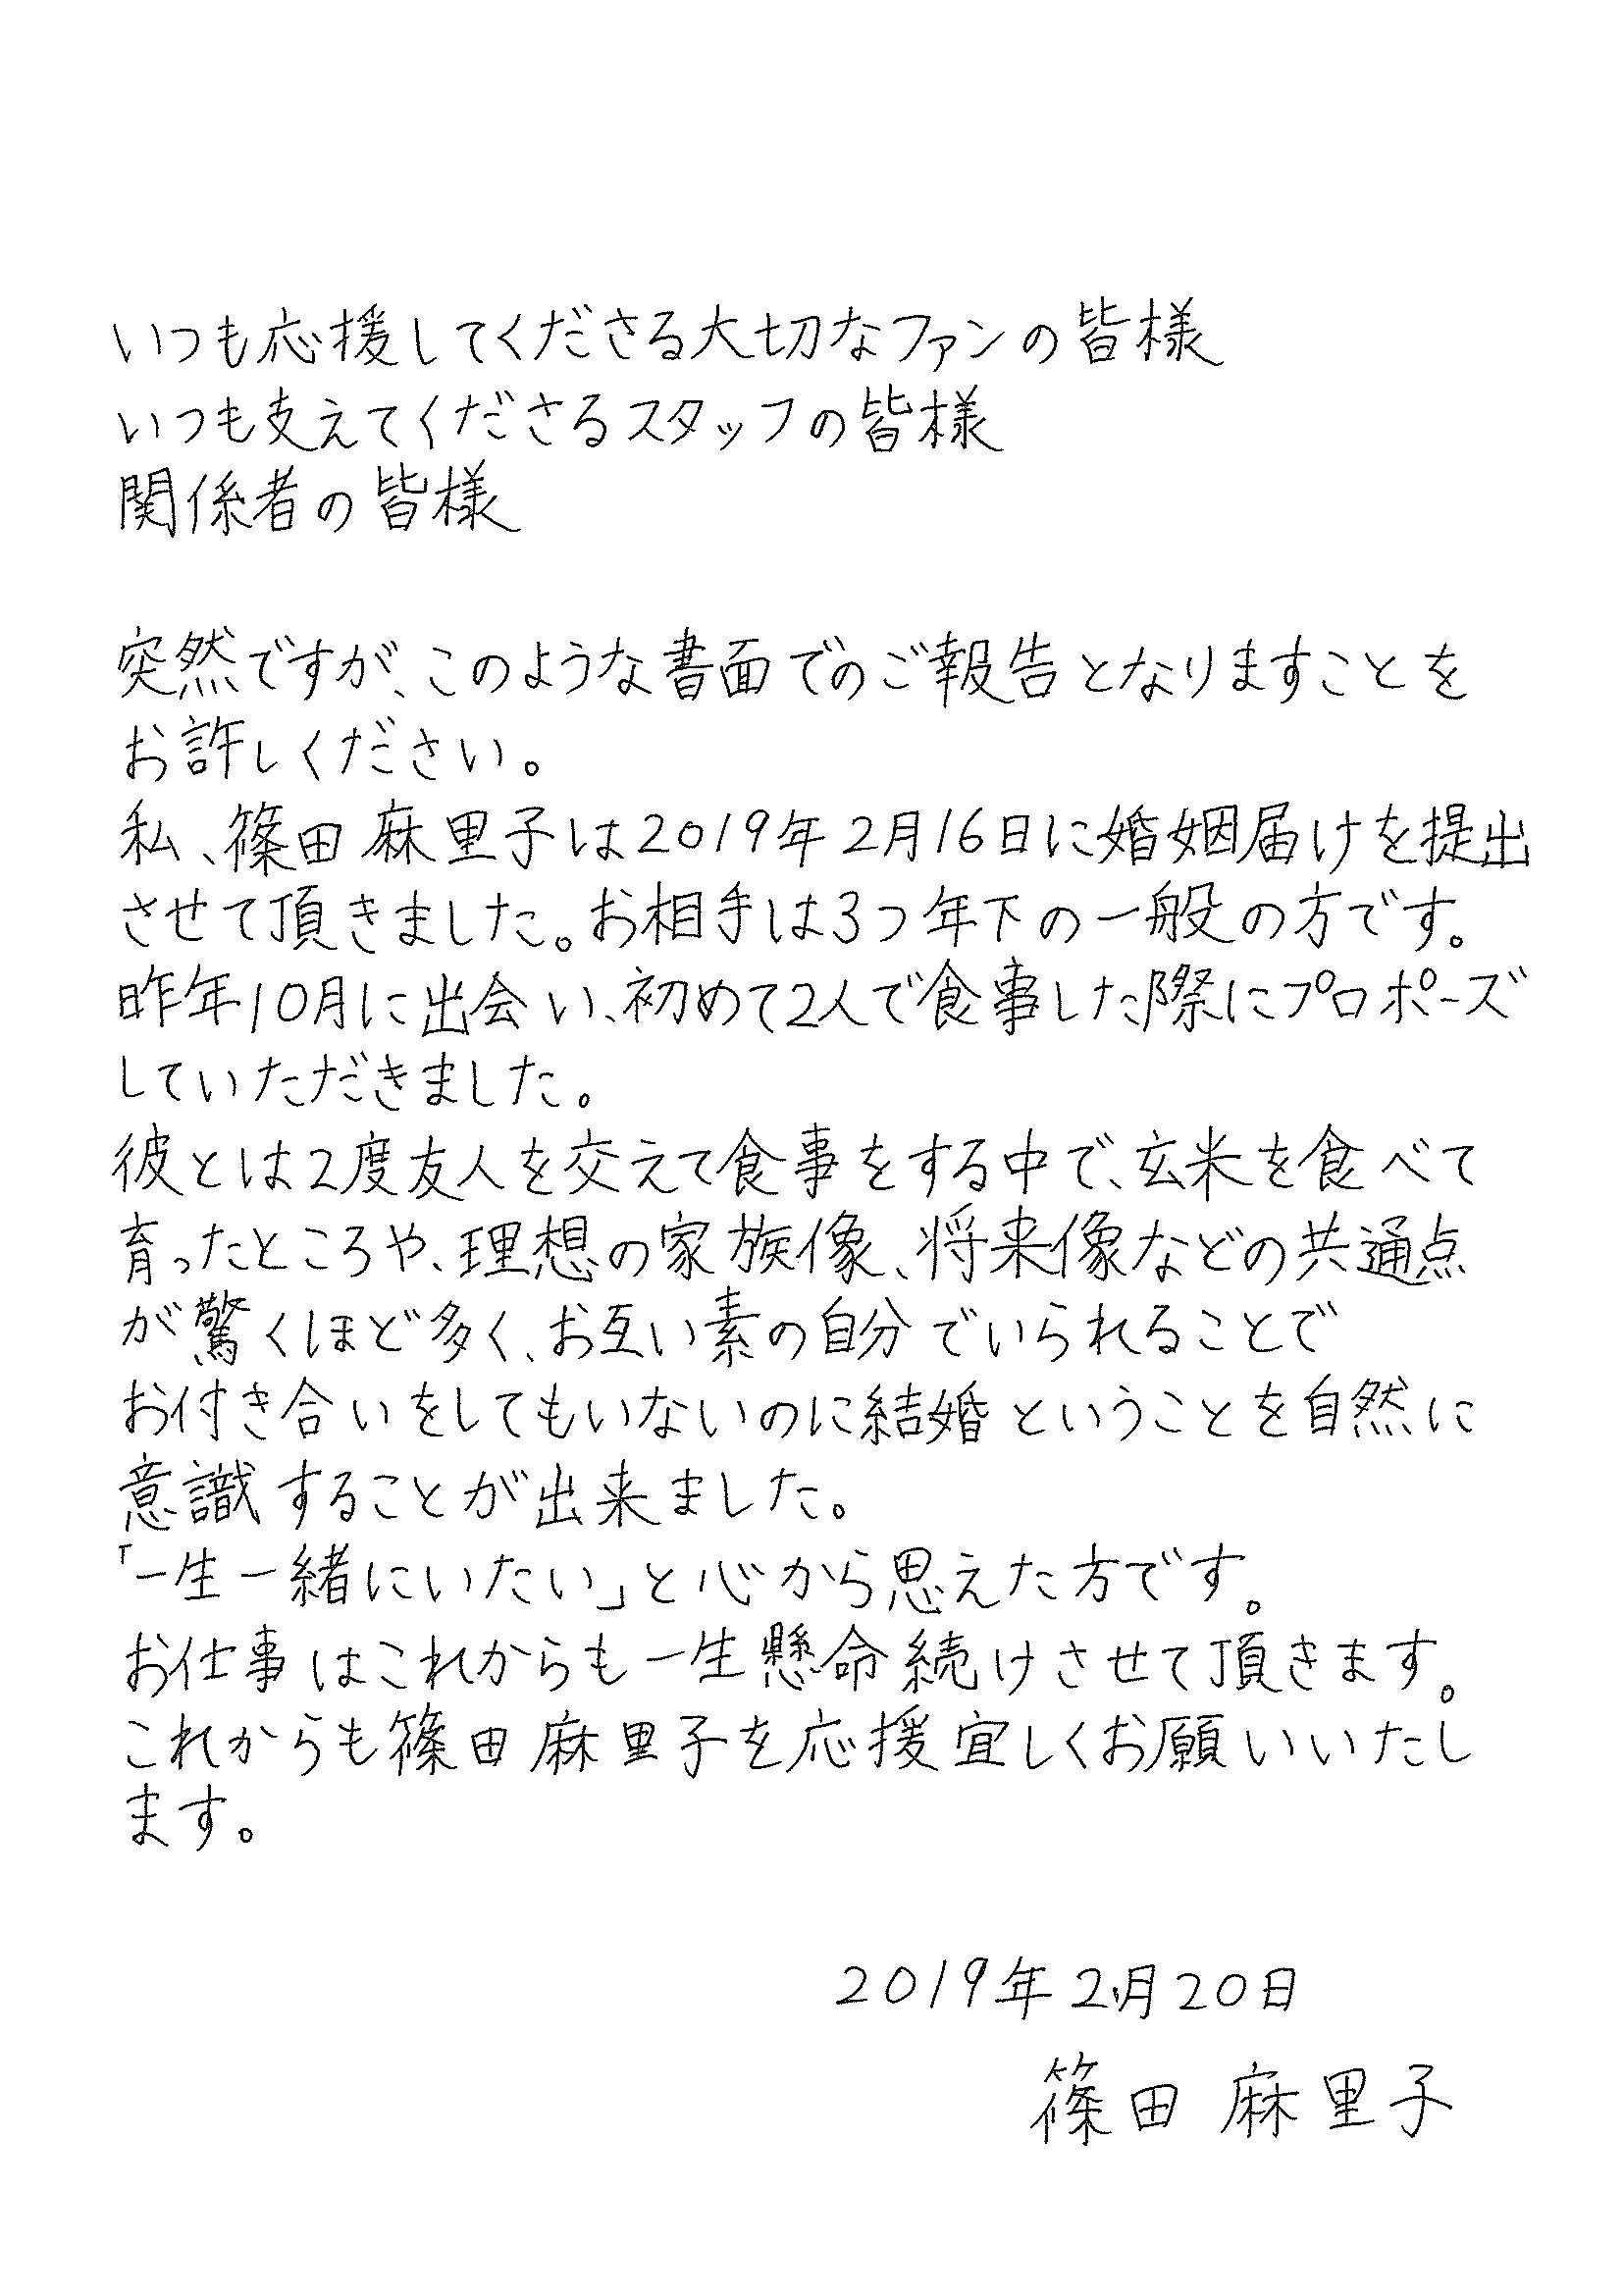 いつも応援してくださる大切なファンの皆様
いつも支えてくださるスタッフの皆様
関係者の皆様
突然ですが、このような書面でのご報告となりますことを
お許しください。
私、篠田麻里子は2019年2月16日に婚姻届けを提出
させて頂きました。お相手は3つ年下の一般の方です。
昨年10月に出会い、初めて2人で食事した際にプロポーズ
していただきました。
彼とは2度友人を交えて食事をする中で、玄米を食べて
育ったところや、理想の家族像、将来像などの共通点
が驚くほど多く、お互い素の自分でいられることで
お付き合いをしてもいないのに結婚ということを自然に
意識することが出来ました。
「一生一緒にいたい」と心から思えた方です。
お仕事はこれからも一生懸命続けさせて頂きます。
これからも篠田麻里子を応援宜しくお願いいたし
ます。
2019年2月20日
篠田 麻里子